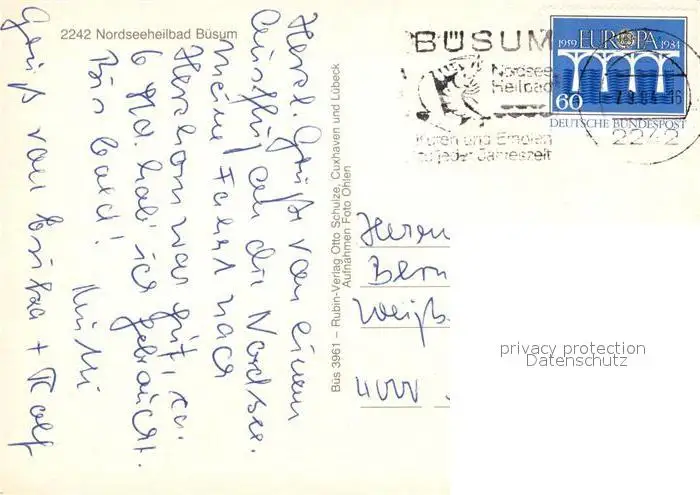 2242 Nordseeheilbad Büsum
Herzl. Grüße von einem
Ausflug an die Nordsee.
Meine Fahrt nach
Herborn war gut, ca.
6 Std. hab' ich gebraucht.
Bis bald!
Gruß von + Rolf
Büs 3961 – Rubin-Verlag Otto Schulze, Cuxhaven und Lübeck
Aufnahmen Foto Ohlen
BÜSUM
Nordsee
Heilbad
Kuren und Erholen
zu jeder Jahreszeit
1959 EUROPA 1984
60
DEUTSCHE BUNDESPOST
2242
Herrn
Bern
Weiß
privacy protection
Datenschutz